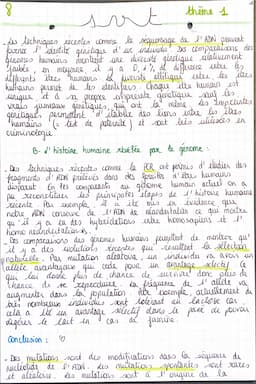 8
thème 1
SVT
. des techniques récentes comme le séquençage de l'ADN peuvent
fournir l'identité génétique d'un individu. Des comparaisons des
génomes humains montrent une diversité génétique relativement
faible, en moyenne, il y a 0,1% de différence entre les
différents êtres humains. La diversité allélique entre les êtres
humains permet de les identifier. Chaque être humain est
unique et a sa propre empreinte génétique, sauf les
vrais jumeaux génétiques, qui ont la même. Les empreintes
génétiques permettent d'établir des liens entre les êtres
humains (= test de paternité) et sont très utilisées en
criminologie.
B- L'histoire humaine révélée par le génome :
. Des techniques récentes comme la PCR ont permis d'étudier des
fragments d'ADN prélevés dans des fossiles d'êtres humains
disparus. En les comparant au génome humain actuel on a
pu reconstituer les principales étapes de l'histoire humaine
récente. Par exemple, il a été mis en évidence que
notre ADN conserve de l'ADN de néandertalien ce qui montre
qu'il y a eu des hybridations entre homosapiens et
homo neandertalensis.
. Des comparaisons des génomes humains permettent de montrer qu'
il y a des évolutions récentes qui résultent de la sélection
naturelle. Par mutation aléatoire, un individu va avoir un
allèle avantageux qui code pour un avantage sélectif ce
qui lui laisse plus de chance de survivre donc plus de
chance de se reproduire. La fréquence de l'allèle va
augmenter dans la population. Par exemple, actuellement de
très nombreux individus sont tolérant au lactose car
cela a été un avantage sélectif dans le passé de pouvoir
digérer le lait en cas de famine.
Conclusion :
. Des mutations sont des modifications dans la séquence de
nucléotide de l'ADN. Les mutations spontanées sont rares
et aléatoires. Les mutations sont à l'origine de la